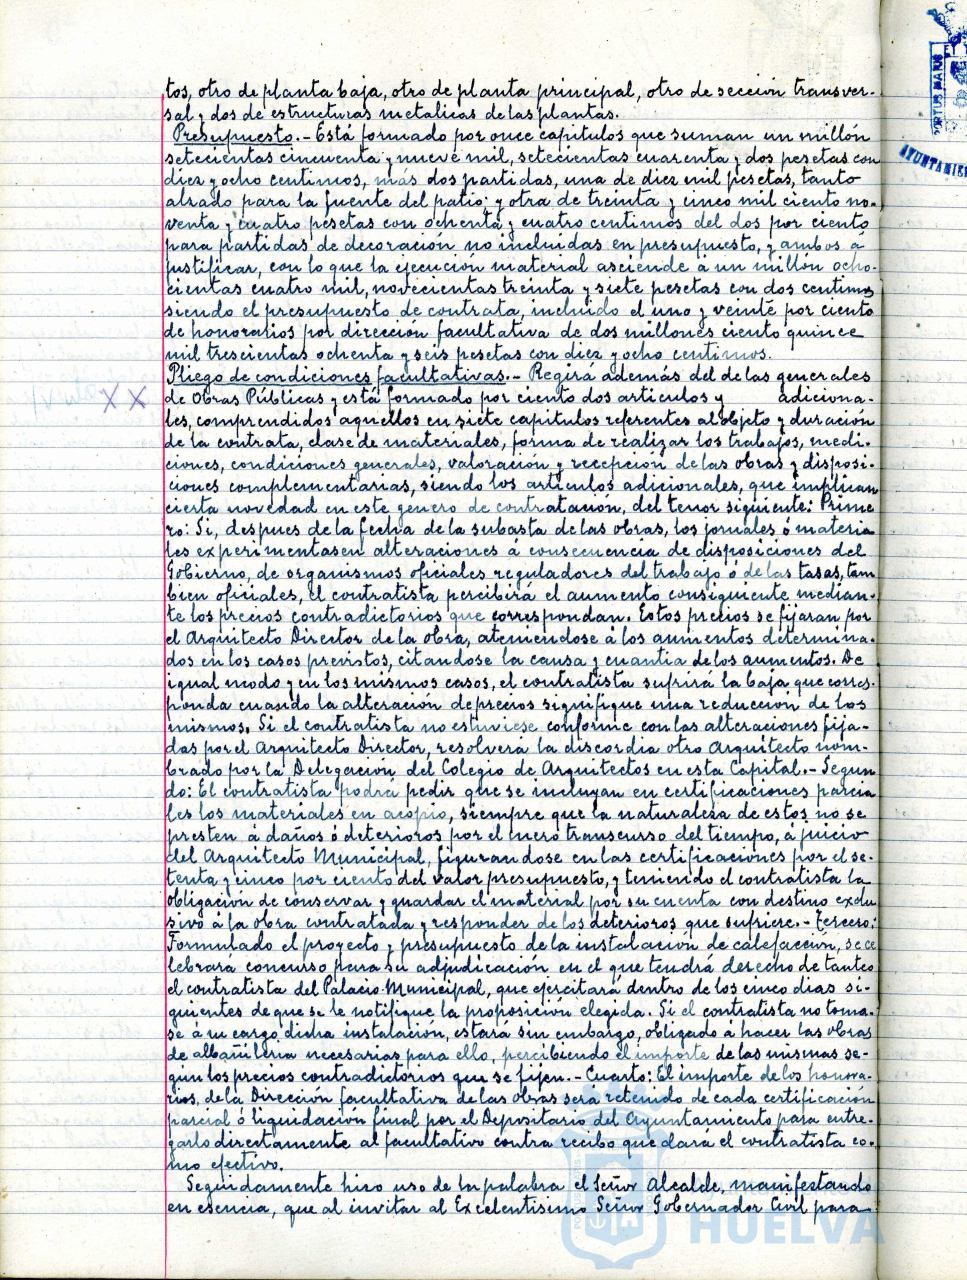 tos, otro de planta baja, otro de planta principal, otro de sección transver-
sal y dos de estructuras metalicas de las plantas.
Presupuesto.- Está formado por once capitulos que suman un millón
setecientas cincuenta y nueve mil, setecientas cuarenta y dos pesetas con
diez y ocho centimos, más dos partidas, una de diez mil pesetas, tanto
alzado para la fuente del patio; y otra de treinta y cinco mil ciento no-
venta y cuatro pesetas con ochenta y cuatro centimos del dos por ciento
para partidas de decoración no incluidas en presupuesto, y ambos a
justificar, con lo que la ejecución material asciende á un millón ocho-
cientas cuatro mil, novecientas treinta y siete pesetas con dos centimos
siendo el presupuesto de contrata, incluido el uno y veinte por ciento
de honoratios por dirección facultativa de dos millones ciento quince
mil trescientas ochenta y seis pesetas con diez y ocho centimos.
Pliego de condiciones facultativas.- Regirá además del de las generales
de Obras Públicas y está formado por ciento dos articulos y adiciona-
XX
les, comprendidos aquellos en siete capitulos referentes al objeto y duración
de la contrata, clase de materiales, forma de realizar los trabajos, medi-
ciones, condiciones generales, valoración y recepción de las obras y disposi-
ciones complementarias, siendo los articulos adicionales, que implican
cierta novedad en este genero de contratación, del tenor siguiente: Prime
ro: Si, despues de la fecha de la subasta de las obras, los jornales ó materia
les experimentasen alteraciones á consecuencia de disposiciones del
Gobierno, de organismos oficiales reguladores del trabajo ó de las tasas, tam
bien oficiales, el contratista percibirá el aumento consiguiente median-
te los precios contradictorios que correspondan. Estos precios se fijaran por
el Arquitecto Director de la obra, ateniendose á los aumentos determina-
dos en los casos previstos, citandose la causa y cuantia de los aumentos. De
igual modo y en los mismos casos, el contratista sufrirá la baja que corres-
ponda cuando la alteración de precios signifique una reducción de los
mismos. Si el contratista no estuviese conforme con las alteraciones fija-
das por el Arquitecto Director, resolverá la discordia otro Arquitecto nom-
brado por la Delegación del Colegio de Arquitectos en esta Capital.- Segun
do: El contratista podrá pedir que se incluyan en certificaciones parcia
les los materiales en acopio, siempre que la naturaleza de estos no se
presten á daños ó deterioros por el mero transcurso del tiempo, á juicio
del Arquitecto Municipal, figurandose en las certificaciones por el se-
tenta y cinco por ciento del valor presupuesto, y teniendo el contratista la
obligación de conservar y guardar el material por su cuenta con destino exclu
sivo á la obra contratada y responder de los deterioros que sufriere.- Tercero:
Formulado el proyecto y presupuesto de la instalación de calefacción, se ce
lebrará concurso para su adjudicación en el que tendrá derecho de tanteo
el contratista del Palacio Municipal, que ejercitará dentro de los cinco dias si-
guientes de que se le notifique la proposición elegida. Si el contratista no toma-
se á su cargo dicha instalación, estará sin embargo, obligado á hacer las obras
de albañileria necesarias para ello, percibiendo el importe de las mismas se-
gún los precios contradictorios que se fijen.- Cuarto: El importe de los honora-
rios, de la Dirección facultativa de las obras será retenido de cada certificación
parcial ó liquidación final por el Depositario del Ayuntamiento para entre-
garlo directamente al facultativo contra recibo que dará el contratista co-
mo efectivo.
Seguidamente hizo uso de la palabra el Señor Alcalde, manifestando
en esencia, que al invitar al Excelentisimo Señor Gobernador Civil para
HUELVA
PORTUS MARIS
AYUNTAMIEN